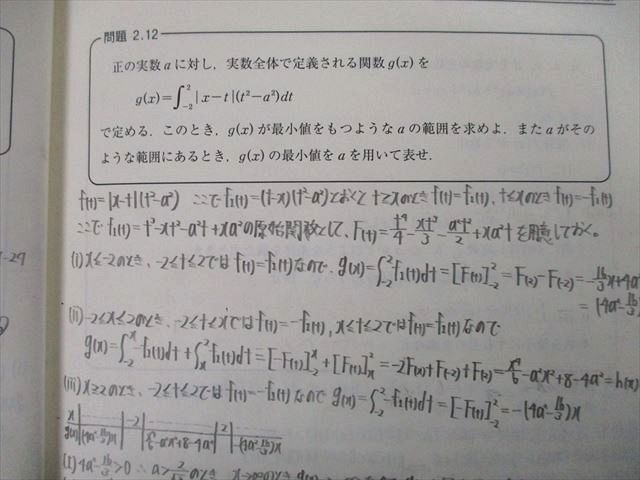 問題 2.12
正の実数 a に対し，実数全体で定義される関数 g(x) を
g(x)=∫_{-2}^{2}|x-t|(t²-a²)dt
で定める．このとき，g(x) が最小値をもつような a の範囲を求めよ．また a がその
ような範囲にあるとき，g(x) の最小値を a を用いて表せ．
f(t)=|x-t|(t²-a²) ここで f₁(t)=(t-x)(t²-a²)とおくと t≧xのとき f(t)=f₁(t), t≦xのとき f(t)=-f₁(t)
ここで f₁(t)=t³-xt²-a²t+xa²の原始関数として、F(t)=t⁴/4-xt³/3-a²t²/2+xa²tを用意しておく。
(i) x≦-2のとき、-2≦t≦2では f(t)=f₁(t)なので、g(x)=∫_{-2}^{2}f₁(t)dt=[F(t)]_{-2}^{2}=F(2)-F(-2)=-16/3x+4a²
=(4a²-16/3)
(ii) -2≦x≦2のとき、-2≦t≦xでは f(t)=-f₁(t), x≦t≦2では f(t)=f₁(t)なので
g(x)=∫_{-2}^{x}-f₁(t)dt+∫_{x}^{2}f₁(t)dt=[-F(t)]_{-2}^{x}+[F(t)]_{x}^{2}=-2F(x)+F(-2)+F(2)=x⁴/6-a²x²+8-4a²=h(x)
(iii) x≧2のとき、-2≦t≦2では f(t)=-f₁(t)なので g(x)=∫_{-2}^{2}-f₁(t)dt=[-F(t)]_{-2}^{2}=-(4a²-16/3)x
x | | -2 | | 2 |
g(x) | (4a²-16/3)x | | x⁴/6-a²x²+8-4a² | | -(4a²-16/3)x
(I) 4a²-16/3>0 ∴ a>2/√3 のとき